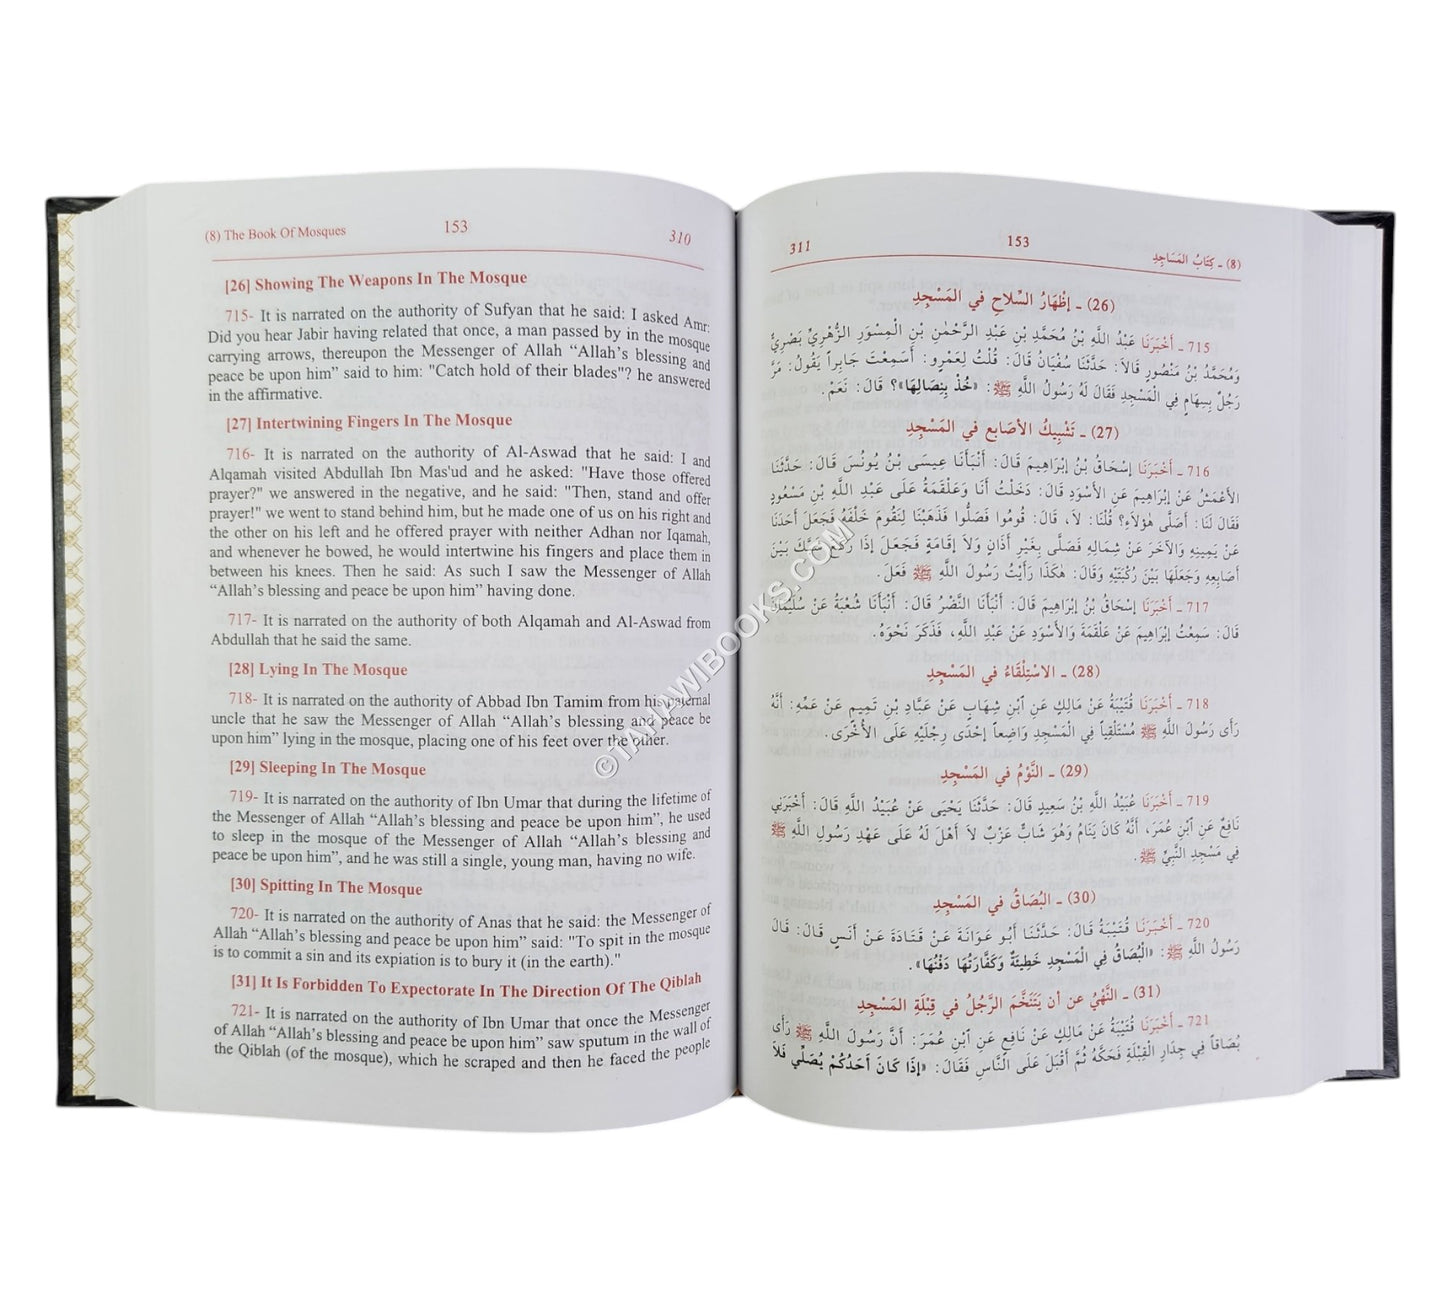 (8) The Book Of Mosques 153 310
[26] Showing The Weapons In The Mosque
715- It is narrated on the authority of Sufyan that he said: I asked Amr:
Did you hear Jabir having related that once, a man passed by in the mosque
carrying arrows, thereupon the Messenger of Allah “Allah’s blessing and
peace be upon him” said to him: "Catch hold of their blades"? he answered
in the affirmative.
[27] Intertwining Fingers In The Mosque
716- It is narrated on the authority of Al-Aswad that he said: I and
Alqamah visited Abdullah Ibn Mas'ud and he asked: "Have those offered
prayer?" we answered in the negative, and he said: "Then, stand and offer
prayer!" we went to stand behind him, but he made one of us on his right and
the other on his left and he offered prayer with neither Adhan nor Iqamah,
and whenever he bowed, he would intertwine his fingers and place them in
between his knees. Then he said: As such I saw the Messenger of Allah
“Allah’s blessing and peace be upon him” having done.
717- It is narrated on the authority of both Alqamah and Al-Aswad from
Abdullah that he said the same.
[28] Lying In The Mosque
718- It is narrated on the authority of Abbad Ibn Tamim from his paternal
uncle that he saw the Messenger of Allah “Allah’s blessing and peace be
upon him” lying in the mosque, placing one of his feet over the other.
[29] Sleeping In The Mosque
719- It is narrated on the authority of Ibn Umar that during the lifetime of
the Messenger of Allah “Allah’s blessing and peace be upon him”, he used
to sleep in the mosque of the Messenger of Allah “Allah’s blessing and
peace be upon him”, and he was still a single, young man, having no wife.
[30] Spitting In The Mosque
720- It is narrated on the authority of Anas that he said: the Messenger of
Allah “Allah’s blessing and peace be upon him” said: "To spit in the mosque
is to commit a sin and its expiation is to bury it (in the earth)."
[31] It Is Forbidden To Expectorate In The Direction Of The Qiblah
721- It is narrated on the authority of Ibn Umar that once the Messenger
of Allah “Allah’s blessing and peace be upon him” saw sputum in the wall of
the Qiblah (of the mosque), which he scraped and then he faced the people
(8) ـ كِتَابُ المَسَاجِدِ 153 311
(26) ـ إظْهَارُ السِّلَاحِ في المَسْجِدِ
715 ـ أَخْبَرَنَا عَبْدُ اللَّهِ بْنُ مُحَمَّدِ بْنِ عَبْدِ الرَّحْمٰنِ بْنِ الْمِسْوَرِ الزُّهْرِيُّ بَصْرِيٌّ
وَمُحَمَّدُ بْنُ مَنْصُورٍ قَالاَ: حَدَّثَنَا سُفْيَانُ قَالَ: قُلْتُ لِعَمْرٍو: أَسَمِعْتَ جَابِراً يَقُولُ: مَرَّ
رَجُلٌ بِسِهَامٍ فِي الْمَسْجِدِ فَقَالَ لَهُ رَسُولُ اللَّهِ ﷺ: «خُذْ بِنِصَالِهَا»؟ قَالَ: نَعَمْ.
(27) ـ تَشْبِيكُ الأَصَابع في المَسْجِدِ
716 ـ أَخْبَرَنَا إسْحَاقُ بْنُ إبْرَاهِيمَ قَالَ: أَنْبَأَنَا عِيسَى بْنُ يُونُسَ قَالَ: حَدَّثَنَا
الأَعْمَشُ عَنْ إبْرَاهِيمَ عَنِ الأَسْوَدِ قَالَ: دَخَلْتُ أَنَا وَعَلْقَمَةُ عَلَى عَبْدِ اللَّهِ بْنِ مَسْعُودٍ
فَقَالَ لَنَا: أَصَلَّى هٰؤُلاَءِ؟ قُلْنَا: لاَ، قَالَ: قُومُوا فَصَلُّوا فَذَهَبْنَا لِنَقُومَ خَلْفَهُ فَجَعَلَ أَحَدَنَا
عَنْ يَمِينِهِ وَالآخَرَ عَنْ شِمَالِهِ فَصَلَّى بِغَيْرِ أَذَانٍ وَلاَ إقَامَةٍ فَجَعَلَ إذَا رَكَعَ شَبَّكَ بَيْنَ
أَصَابِعِهِ وَجَعَلَهَا بَيْنَ رُكْبَتَيْهِ وَقَالَ: هٰكَذَا رَأَيْتُ رَسُولَ اللَّهِ ﷺ فَعَلَ.
717 ـ أَخْبَرَنَا إسْحَاقُ بْنُ إبْرَاهِيمَ قَالَ: أَنْبَأَنَا النَّضْرُ قَالَ: أَنْبَأَنَا شُعْبَةُ عَنْ سُلَيْمَانَ
قَالَ: سَمِعْتُ إبْرَاهِيمَ عَنْ عَلْقَمَةَ وَالأَسْوَدِ عَنْ عَبْدِ اللَّهِ، فَذَكَرَ نَحْوَهُ.
(28) ـ الاسْتِلْقَاءُ في المَسْجِدِ
718 ـ أَخْبَرَنَا قُتَيْبَةُ عَنْ مَالِكٍ عَنِ ٱبْنِ شِهَابٍ عَنْ عَبَّادِ بْنِ تَمِيمٍ عَنْ عَمِّهِ: أَنَّهُ
رَأَى رَسُولَ اللَّهِ ﷺ مُسْتَلْقِياً فِي الْمَسْجِدِ وَاضِعاً إحْدَى رِجْلَيْهِ عَلَى الأُخْرَى.
(29) ـ النَّوْمُ في المَسْجِدِ
719 ـ أَخْبَرَنَا عُبَيْدُ اللَّهِ بْنُ سَعِيدٍ قَالَ: حَدَّثَنَا يَحْيَى عَنْ عُبَيْدِ اللَّهِ قَالَ: أَخْبَرَنِي
نَافِعٌ عَنِ ٱبْنِ عُمَرَ، أَنَّهُ كَانَ يَنَامُ وَهُوَ شَابٌّ عَزْبٌ لاَ أَهْلَ لَهُ عَلَى عَهْدِ رَسُولِ اللَّهِ ﷺ
فِي مَسْجِدِ النَّبِيِّ ﷺ.
(30) ـ البُصَاقُ في المَسْجِدِ
720 ـ أَخْبَرَنَا قُتَيْبَةُ قَالَ: حَدَّثَنَا أَبُو عَوَانَةَ عَنْ قَتَادَةَ عَنْ أَنَسٍ قَالَ: قَالَ
رَسُولُ اللَّهِ ﷺ: «الْبُصَاقُ فِي الْمَسْجِدِ خَطِيئَةٌ وَكَفَّارَتُهَا دَفْنُهَا».
(31) ـ النَّهْيُ عن أن يَتَنَخَّمَ الرَّجُلُ في قِبْلَةِ المَسْجِدِ
721 ـ أَخْبَرَنَا قُتَيْبَةُ عَنْ مَالِكٍ عَنْ نَافِعٍ عَنِ ٱبْنِ عُمَرَ: أَنَّ رَسُولَ اللَّهِ ﷺ رَأَى
بُصَاقاً فِي جِدَارِ الْقِبْلَةِ فَحَكَّهُ ثُمَّ أَقْبَلَ عَلَى النَّاسِ فَقَالَ: «إذَا كَانَ أَحَدُكُمْ يُصَلِّي فَلاَ
©TAHAWIBOOKS.COM